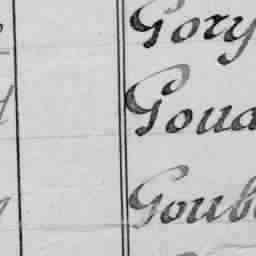 Gory
Goua
Goub